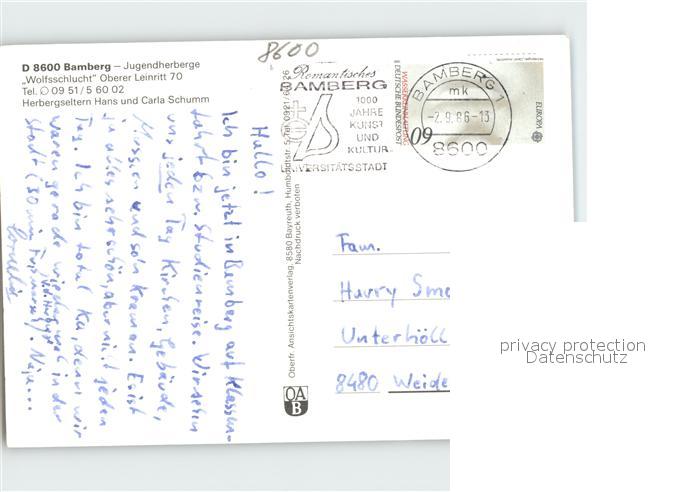 8600
D 8600 Bamberg – Jugendherberge
„Wolfsschlucht" Oberer Leinritt 70
Tel. 09 51/5 60 02
Herbergseltern Hans und Carla Schumm
Romantisches
BAMBERG
1000
JAHRE
KUNST
UND
KULTUR
UNIVERSITÄTSSTADT
BAMBERG 1
mk
-2.9.86-13
8600
DEUTSCHE BUNDESPOST
60
EUROPA
Hallo!
Ich bin jetzt in Bamberg auf Klassen-
fahrt bzw. Studienreise. Wir sehn
uns jeden Tag Kirchen, Gebäude,
Museen und so'n Kram an. Es ist
ja alles sehr schön, aber nicht jeden
Tag. Ich bin total k.o., denn wir
waren gerade wieder mal in der
Stadt (30 min Fußmarsch). Naja...
Oberfr. Ansichtskartenverlag, 8580 Bayreuth, Humboldtstr. 5, Tel. 0921/6
26
Nachdruck verboten
OA
B
Fam.
Harry Sme
Unterhöll
8480 Weide
privacy protection
Datenschutz